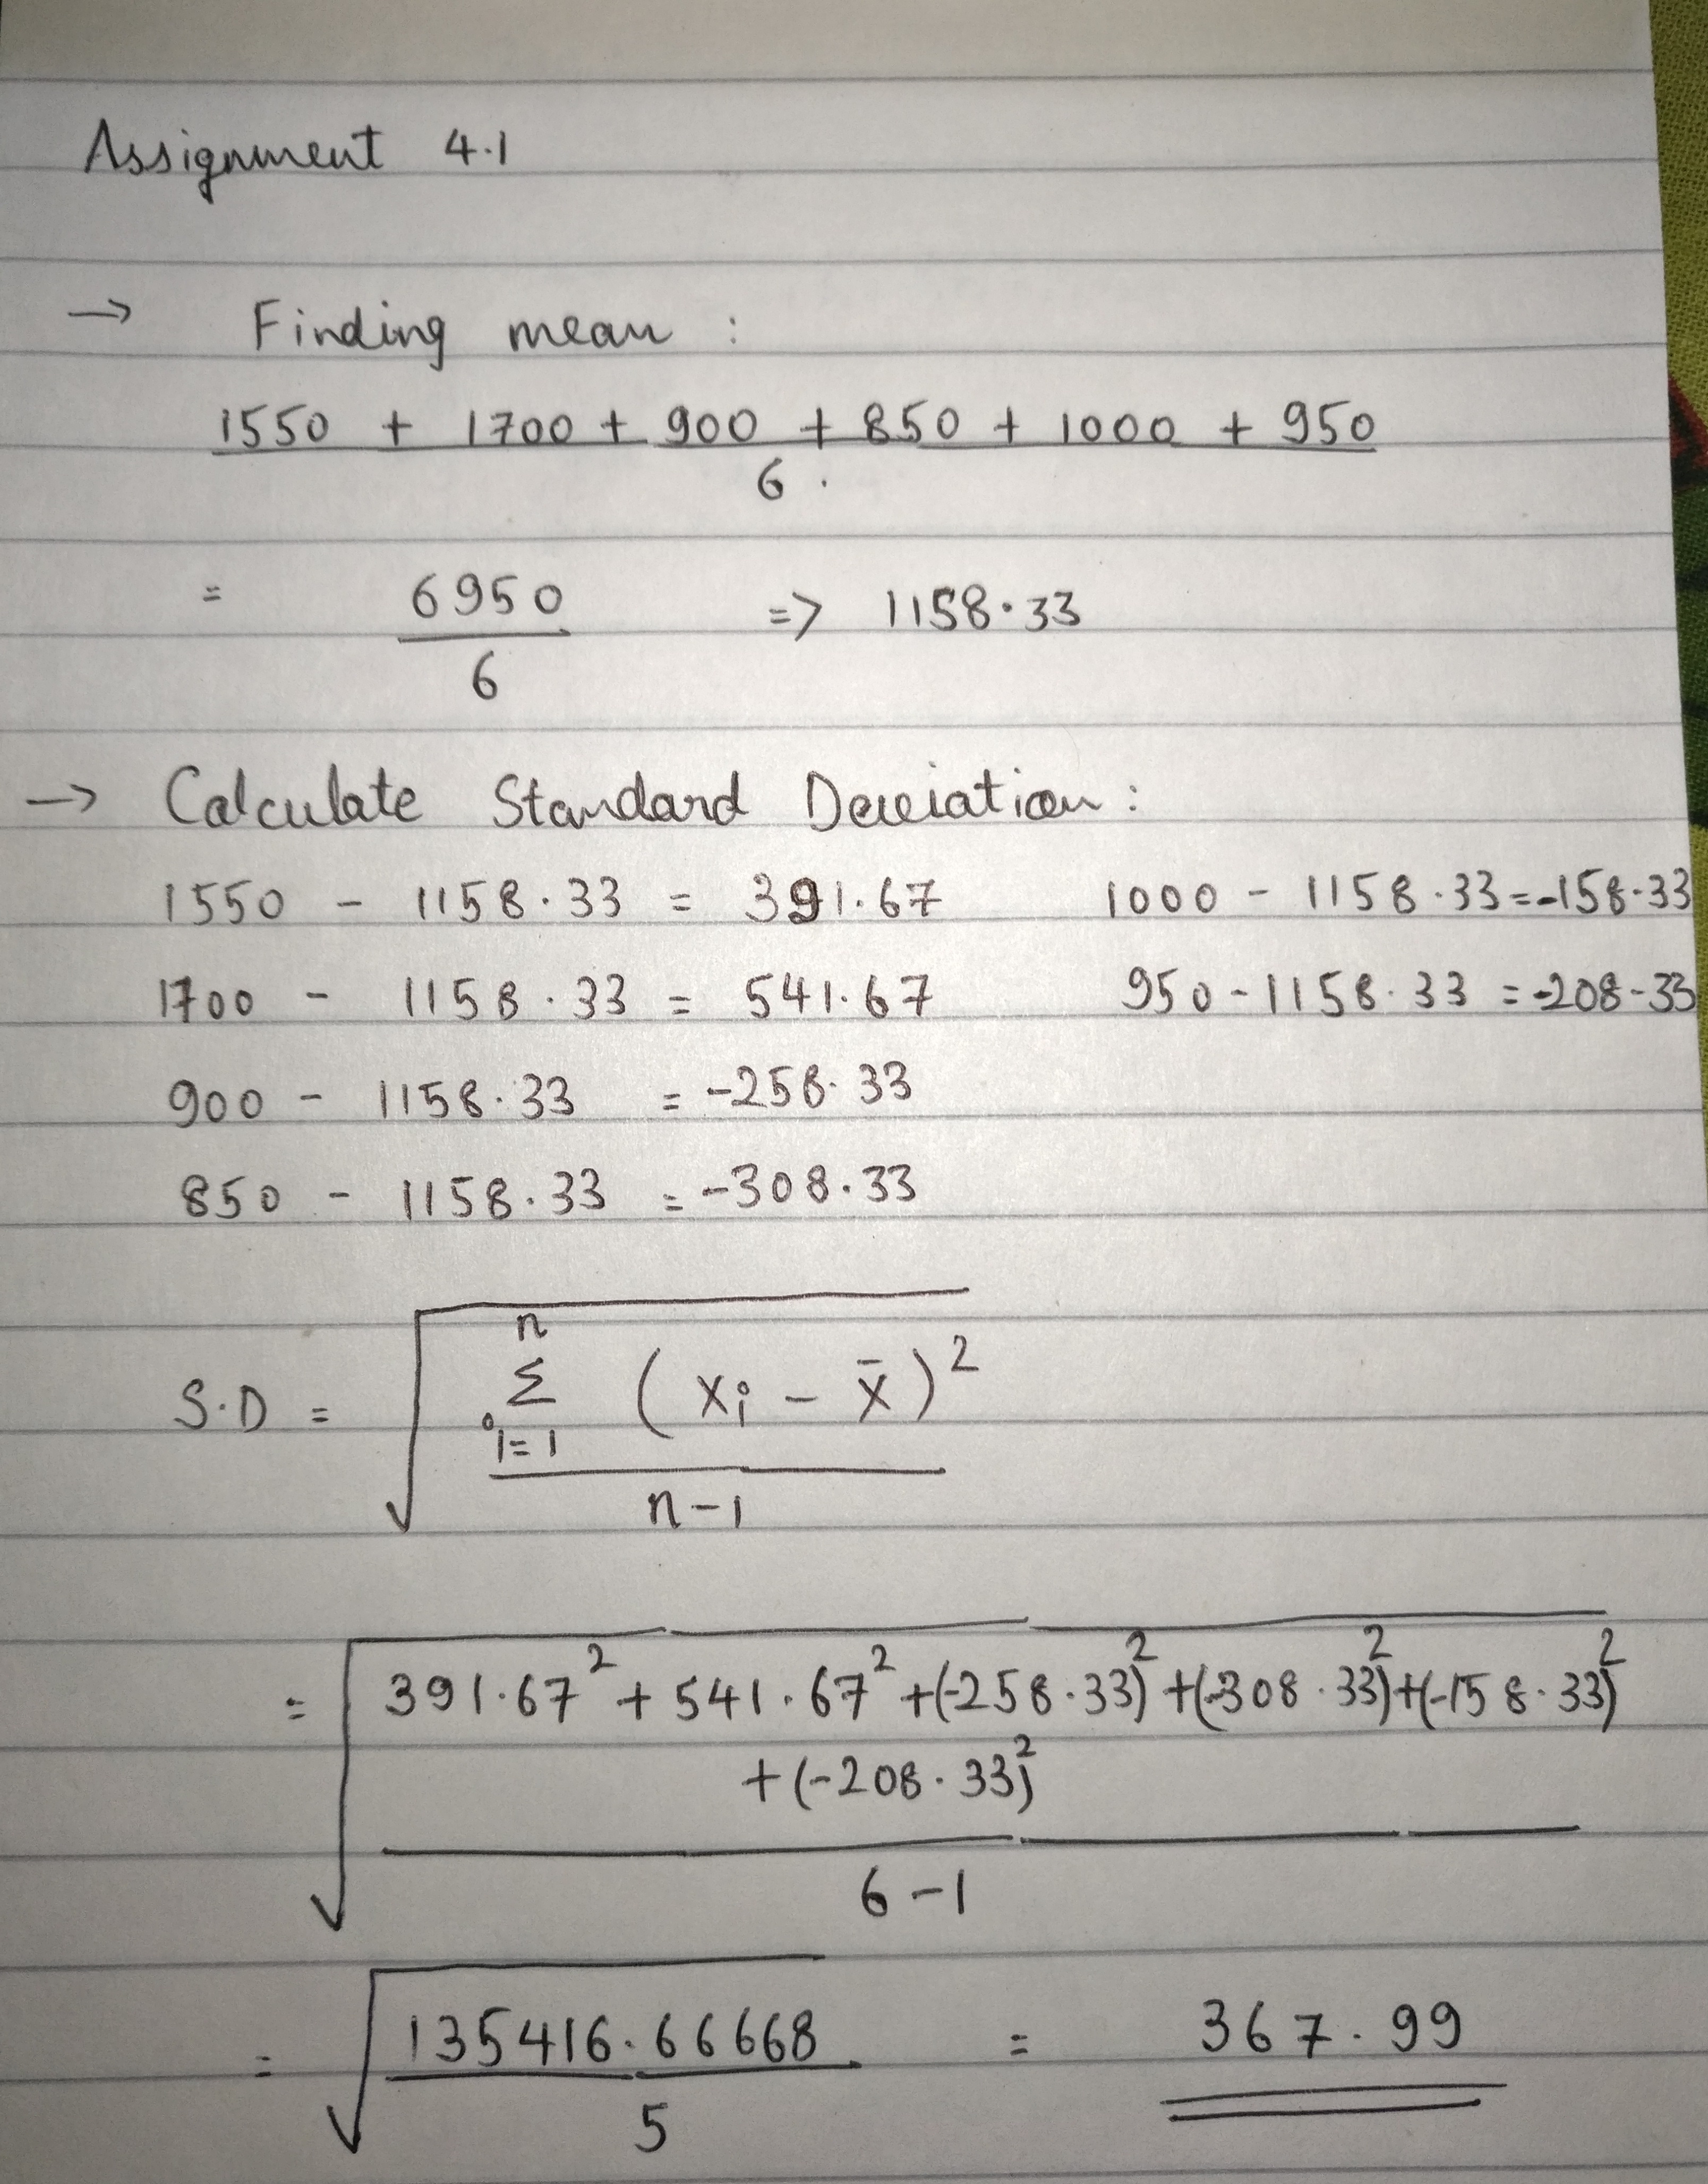 Assignment 4.1
→ Finding mean :
1550 + 1700 + 900 + 850 + 1000 + 950
6 .
= 6950 => 1158.33
6
→ Calculate Standard Deviation :
1550 - 1158.33 = 391.67 1000 - 1158.33 = -158.33
1700 - 1158.33 = 541.67 950 - 1158.33 = -208.33
900 - 1158.33 = -258.33
850 - 1158.33 = -308.33
n
S.D = √ Σ (xi - x̄)²
i=1
n-1
= √ 391.67² + 541.67² + (-258.33)² + (-308.33)² + (-158.33)²
+ (-208.33)²
6 - 1
= √ 135416.66668 = 367.99
5